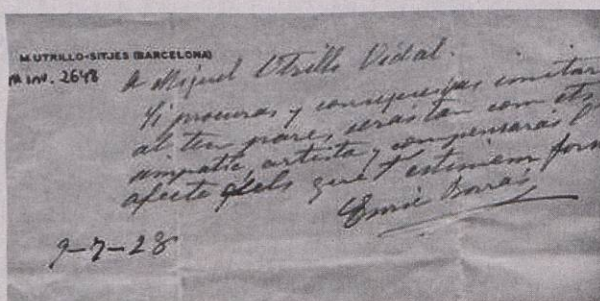 M. UTRILLO-SITJES (BARCELONA)
M inv. 2648
A Miquel Utrillo Vidal.
Si procuras y consegueixas imitar
al teu pare, seras tan com ell
simpatic, artista y compensaras l'
afecte dels que t'estimem
Enric Borrás
9-7-28